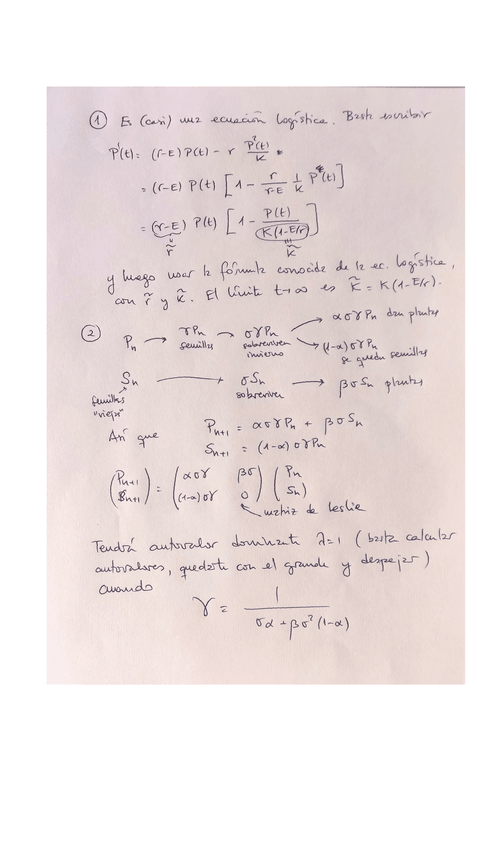 ① Es (casi) una ecuación logística. Basta escribir
P'(t) = (r-E) P(t) - r P²(t)/K
= (r-E) P(t) [1 - r/(r-E) 1/K P(t)]
= (r-E) P(t) [1 - P(t)/(K(1-E/r))]
r̃ K̃
y luego usar la fórmula conocida de la ec. logística,
con r̃ y K̃. El límite t→∞ es K̃ = K(1-E/r).
② Pn → γPn semillas → σγPn sobreviven invierno → ασγPn dan plantas
→ (1-α)σγPn se quedan semillas
Sn semillas "viejas" → σSn sobreviven → βσSn plantas
Así que Pn+1 = ασγPn + βσSn
Sn+1 = (1-α)σγPn
(Pn+1 Sn+1) = (ασγ βσ (1-α)σγ 0) (Pn Sn)
matriz de Leslie
Tendrá autovalor dominante λ=1 (basta calcular
autovalores, quedarte con el grande y despejar)
cuando
γ = 1/(σα + βσ²(1-α))